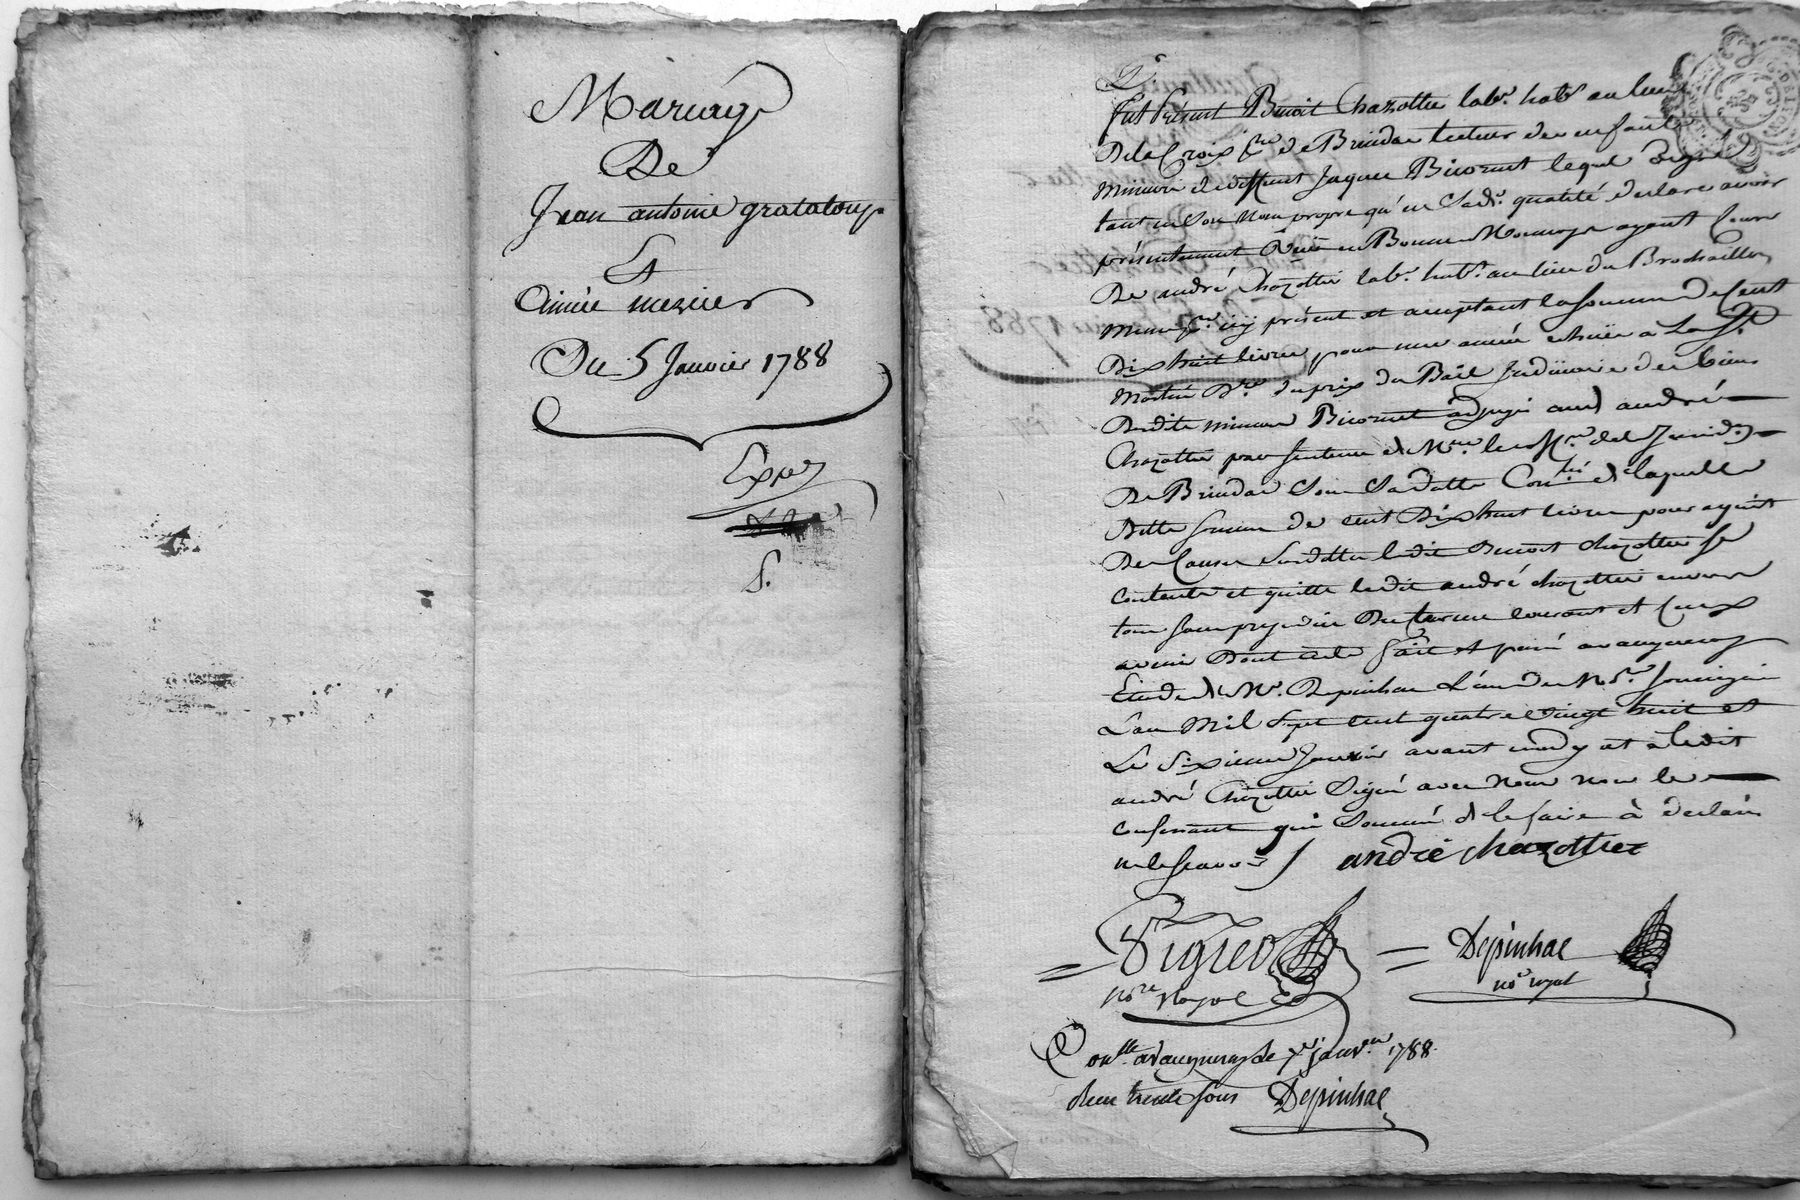 Mariage
De
Jean antoine grataloup
Et
Aimée mercier
Du 5 Janvier 1788
Expée
S.
Fut Présent Benoit Chazottier labr. habt au lieu
De la Croix psse de Brindas tuteur des enfants
mineurs de deffunt Jaques Bicornet lequel de gré
tant en son nom propre qu'en sadt. qualité declare avoir
présentement Reçu en Bonne Monnoye ayant Cours
De andré Chazottier labr. habt. au lieu du Brochaillon
meme psse icy présent et acceptant la somme de Cent
Dix huit livres pour une année echüe a la St
Martin Dre du prix du Bail Judiciaire des biens
Desdits mineurs Bicornet adjugé aud andré
Chazottier par sentence de Mr. le de la Jurisdon
De Brindas sous sa datte Conlée de laquelle
Ditte somme de cent Dix huit livres pour ayant
De Causes susdittes ledit Benoit Chazottier se
contente et quitte ledit andré chazottier envers
tous sans prejudice Du terme courant et Ceux
avenir Dont acte fait et passé a vaugneray
Etude de Me. Depinhac L'un des Nres. soussignés
L'an Mil Sept cent quatre vingt huit et
Le Sixieme Janvier avant midy et a ledit
andré Chazottier Signé avec Nous non le
confessant qui sommé de le faire à déclaré
ne le scavoir / andré chazottier
not royal
Depinhac
no royal
Conlle a vaugneray le 7e janver 1788.
recu trente sous Depinhac